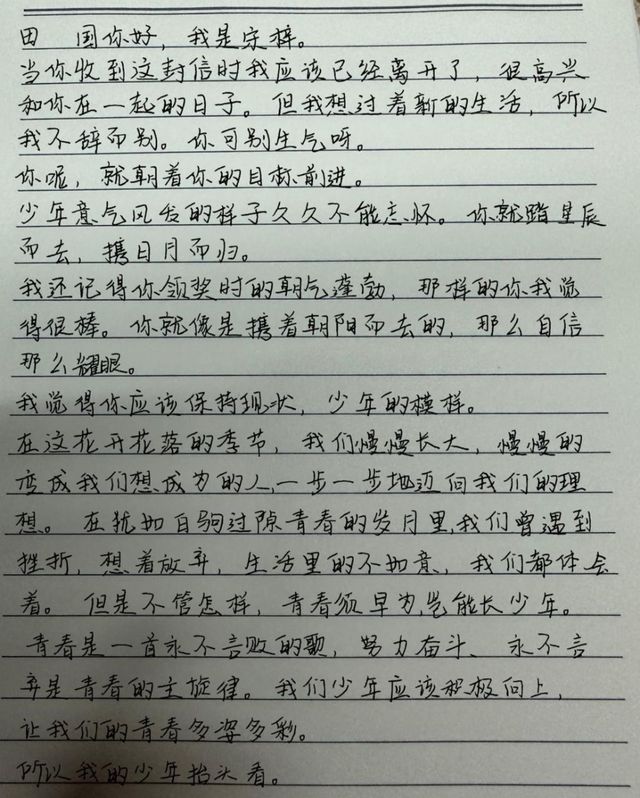 田 国你好，我是宗梓。
当你收到这封信时我应该已经离开了，很高兴
和你在一起的日子。但我想过着新的生活，所以
我不辞而别。你可别生气呀。
你呢，就朝着你的目标前进。
少年意气风发的样子久久不能忘怀。你就踏星辰
而去，携日月而归。
我还记得你领奖时的朝气蓬勃，那样的你我觉
得很棒。你就像是携着朝阳而去的，那么自信
那么耀眼。
我觉得你应该保持现状，少年的模样。
在这花开花落的季节，我们慢慢长大，慢慢的
变成我们想成为的人，一步一步地迈向我们的理
想。在犹如白驹过隙青春的岁月里，我们曾遇到
挫折，想着放弃，生活里的不如意，我们都体会
着。但是不管怎样，青春须早为，岂能长少年。
青春是一首永不言败的歌，努力奋斗、永不言
弃是青春的主旋律。我们少年应该积极向上，
让我们的青春多姿多彩。
所以我的少年抬头看。